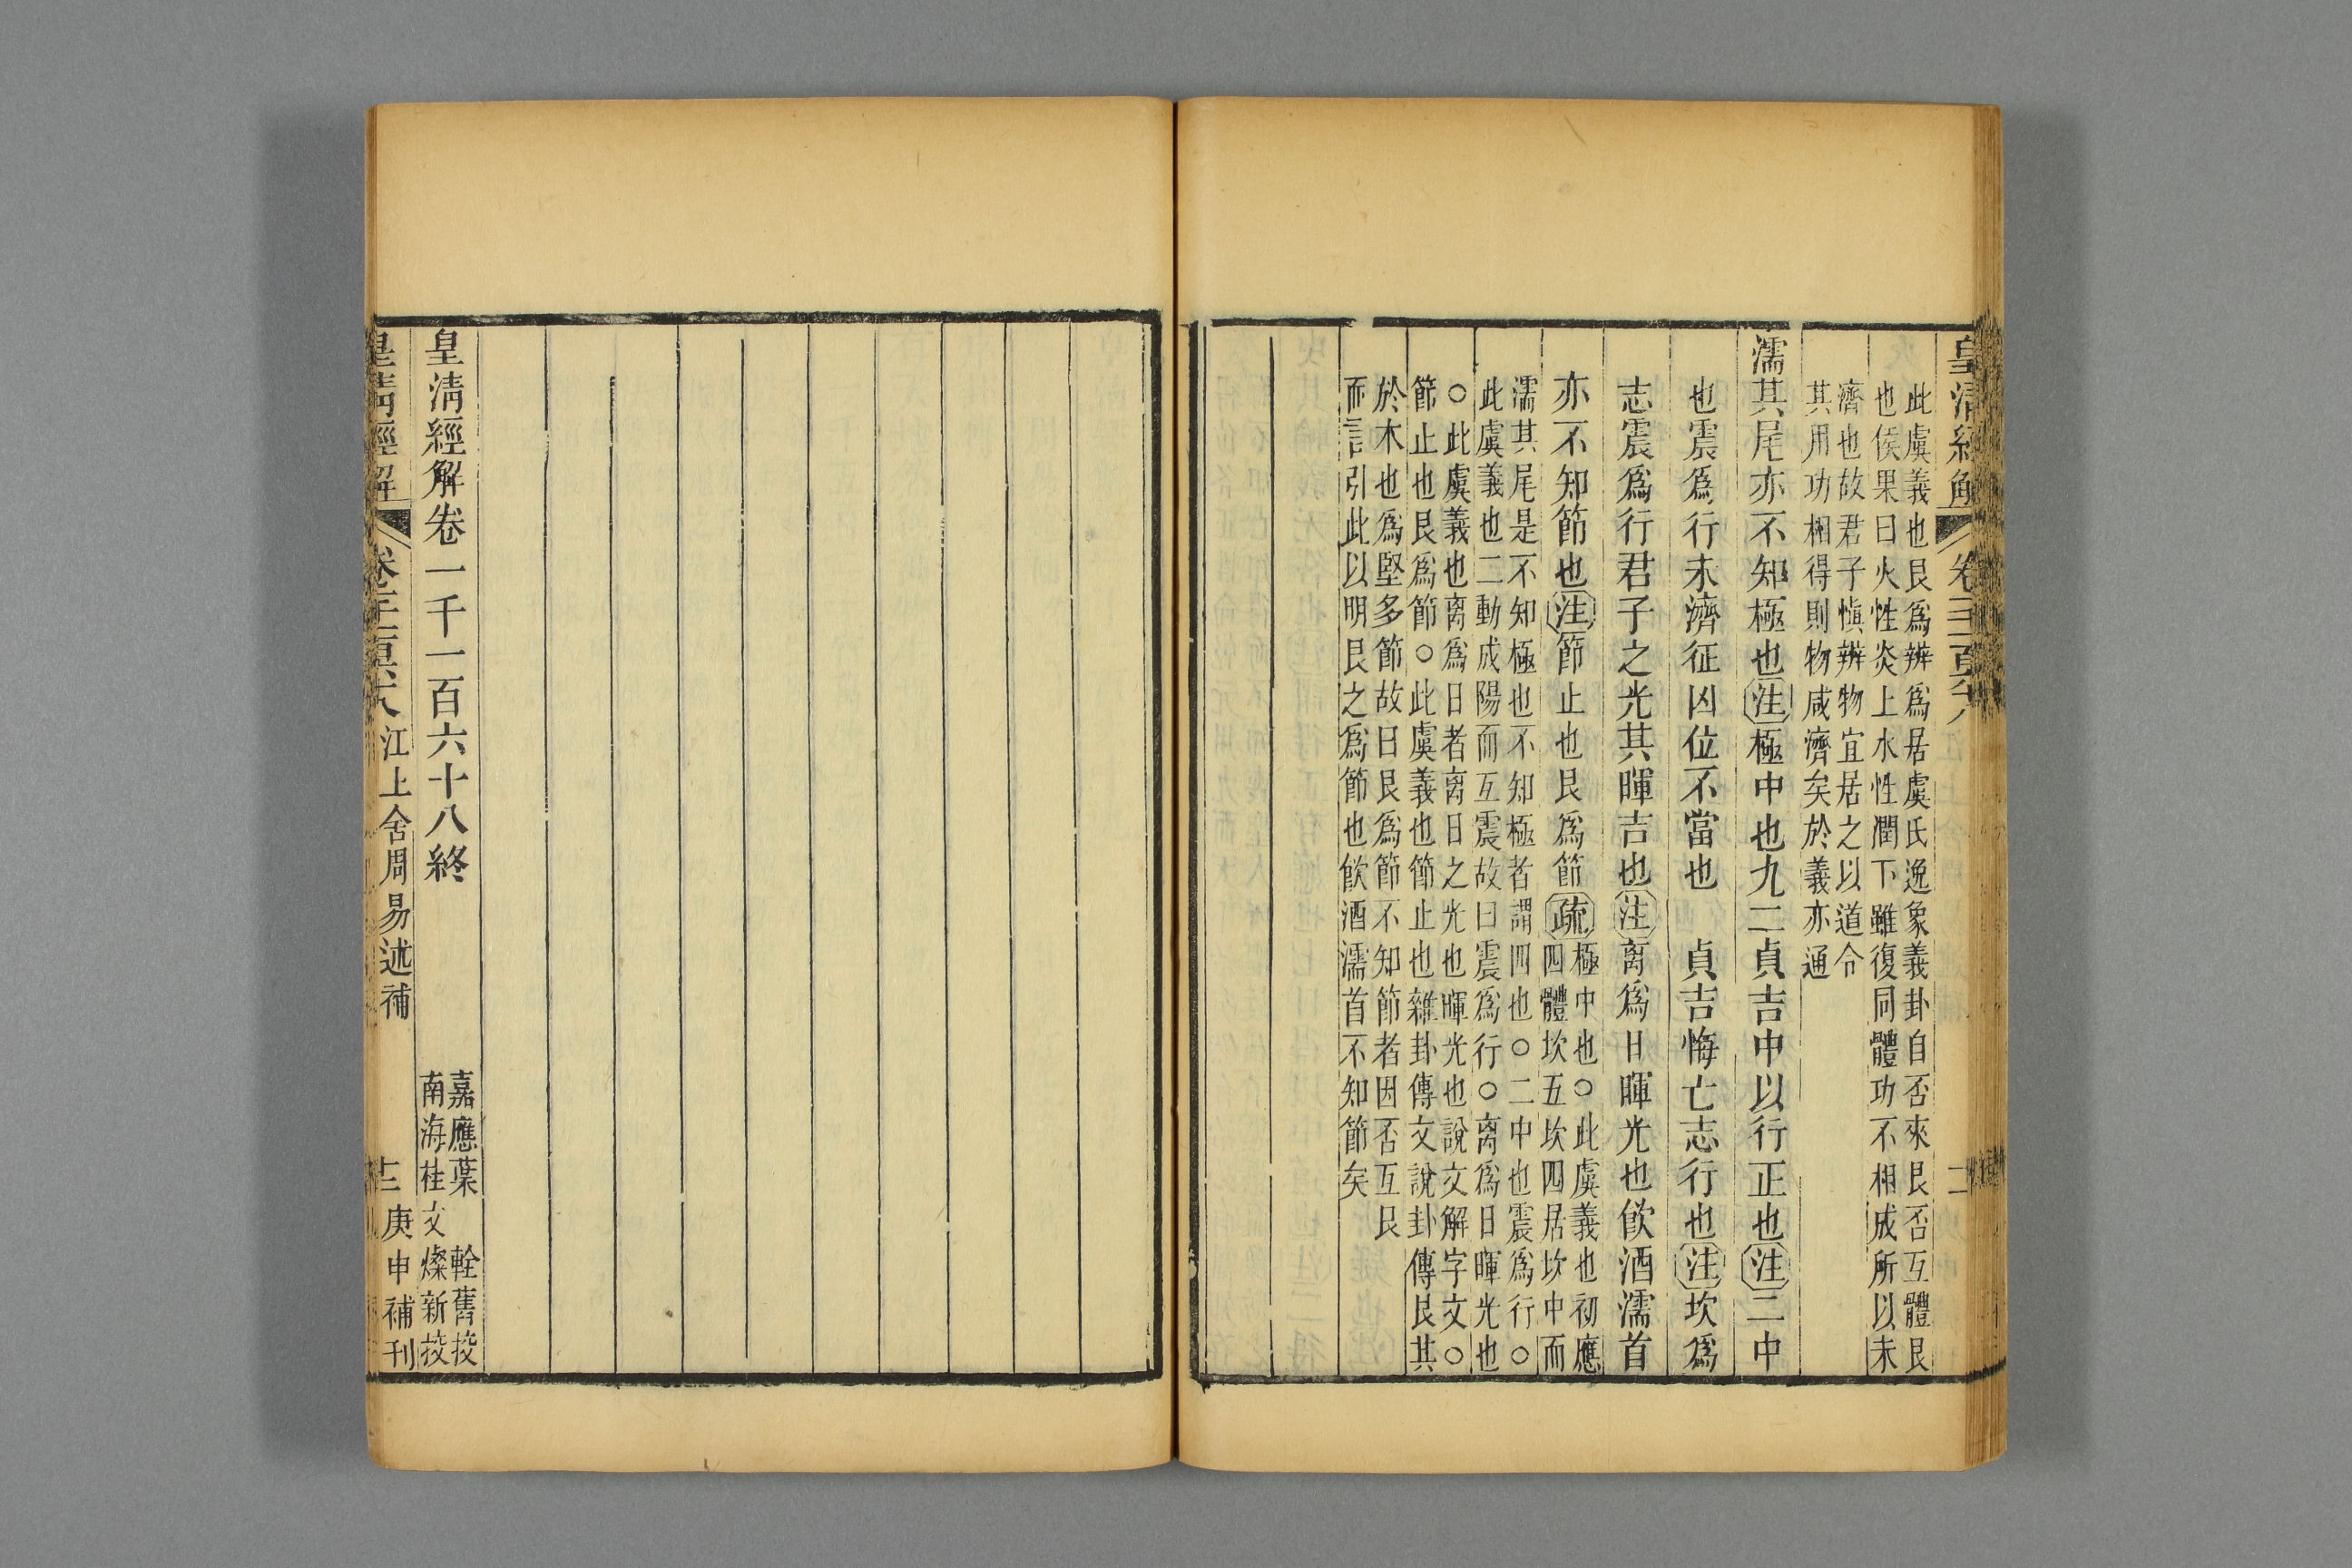 皇清經解
此虞義也艮爲辨爲居虞氏逸象義卦自否來艮否互體艮
也侯果曰火性炎上水性潤下雖復同體功不相成所以未
濟也故君子愼辨物宜居之以道令
其用功相得則物咸濟矣於義亦通
濡其尾亦不知極也注極中也九二貞吉中以行正也注二中
也震爲行未濟征凶位不當也　貞吉悔亡志行也注坎爲
志震爲行君子之光其暉吉也注离爲日暉光也飮酒濡首
亦不知節也注節止也艮爲節疏
極中也○此虞義也初應
四體坎五坎四居坎中而
濡其尾是不知極也不知極者謂四也○二中也震爲行○
此虞義也二動成陽而互震故曰震爲行○离爲日暉光也
○此虞義也离爲日者离日之光也暉光也說文解字文○
節止也艮爲節○此虞義也節止也雜卦傳文說卦傳艮其
於木也爲堅多節故曰艮爲節不知節者因否互艮
而言引此以明艮之爲節也飮酒濡首不知節矣
皇清經解卷一千一百六十八終
嘉應葉　輇舊挍
南海桂文燦新挍
皇清經解
江上舍周易述補
庚申補刊